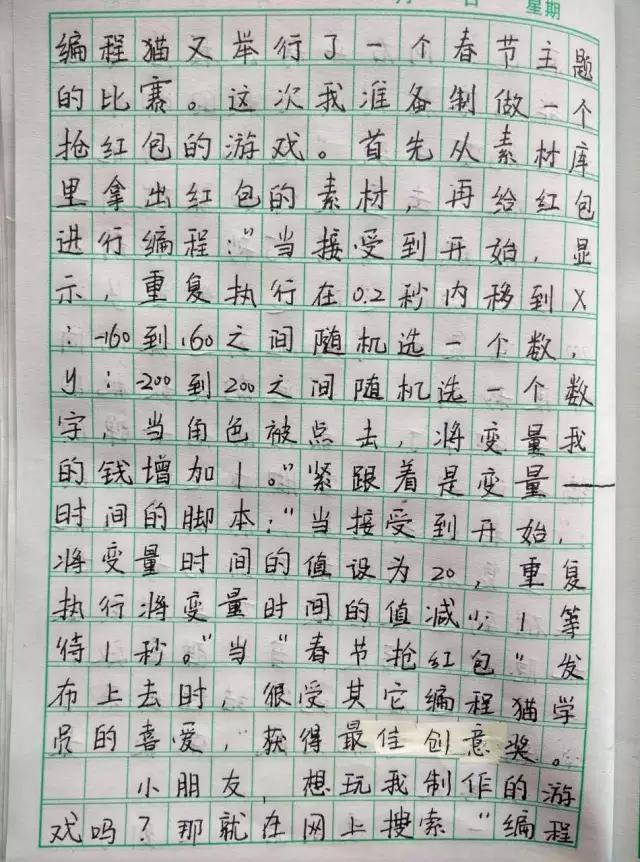 日 星期
编程猫又举行了一个春节主题
的比赛。这次我准备制做一个
抢红包的游戏。首先从素材库
里拿出红包的素材，再给红包
进行编程："当接受到开始，显
示，重复执行在0.2秒内移到X
：-160到160之间随机选一个数，
y：-200到200之间随机选一个数
字，当角色被点击，将变量我
的钱增加1。"紧跟着是变量——
时间的脚本："当接受到开始，
将变量时间的值设为20，重复
执行将变量时间的值减少1等
待1秒。"当"春节抢红包"发
布上去时，很受其它编程猫学
员的喜爱，获得最佳创意奖。
小朋友，想玩我制作的游
戏吗？那就在网上搜索"编程